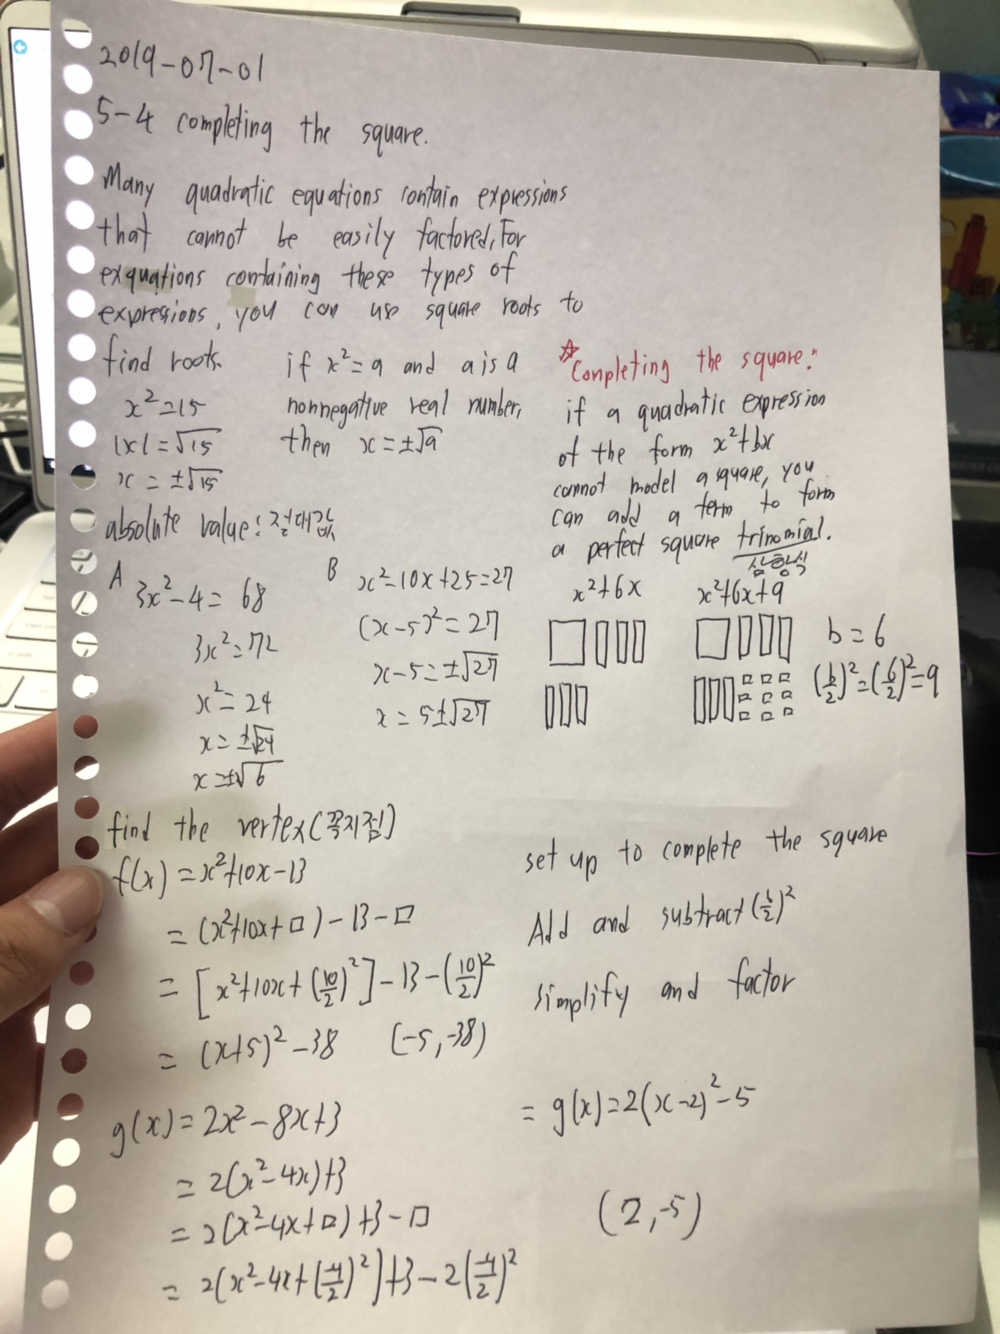 2019-07-01
5-4 completing the square.
Many quadratic equations contain expressions
that cannot be easily factored, For
exquations containing these types of
expressions, you can use square roots to
find roots.
x²=15
|x|=√15
x=±√15
if x²=a and a is a
nonnegative real number,
then x=±√a
absolute value: 절대값
☆Completing the square:
if a quadratic expression
of the form x²+bx
cannot model a square, you
can add a term to form
a perfect square trinomial.
삼항식
A 3x²-4=68
3x²=72
x²=24
x=±√24
x=±√6
B x²-10x+25=27
(x-5)²=27
x-5=±√27
x=5±√27
x²+6x
x²+6x+9
b=6
(b/2)²=(6/2)²=9
find the vertex(꼭지점)
f(x)=x²+10x-13
=(x²+10x+□)-13-□
=[x²+10x+(10/2)²]-13-(10/2)²
=(x+5)²-38 (-5,-38)
set up to complete the square
Add and subtract (b/2)²
simplify and factor
g(x)=2x²-8x+3
=2(x²-4x)+3
=2(x²-4x+□)+3-□
=2(x²-4x+(-4/2)²)+3-2(-4/2)²
=g(x)=2(x-2)²-5
(2,-5)